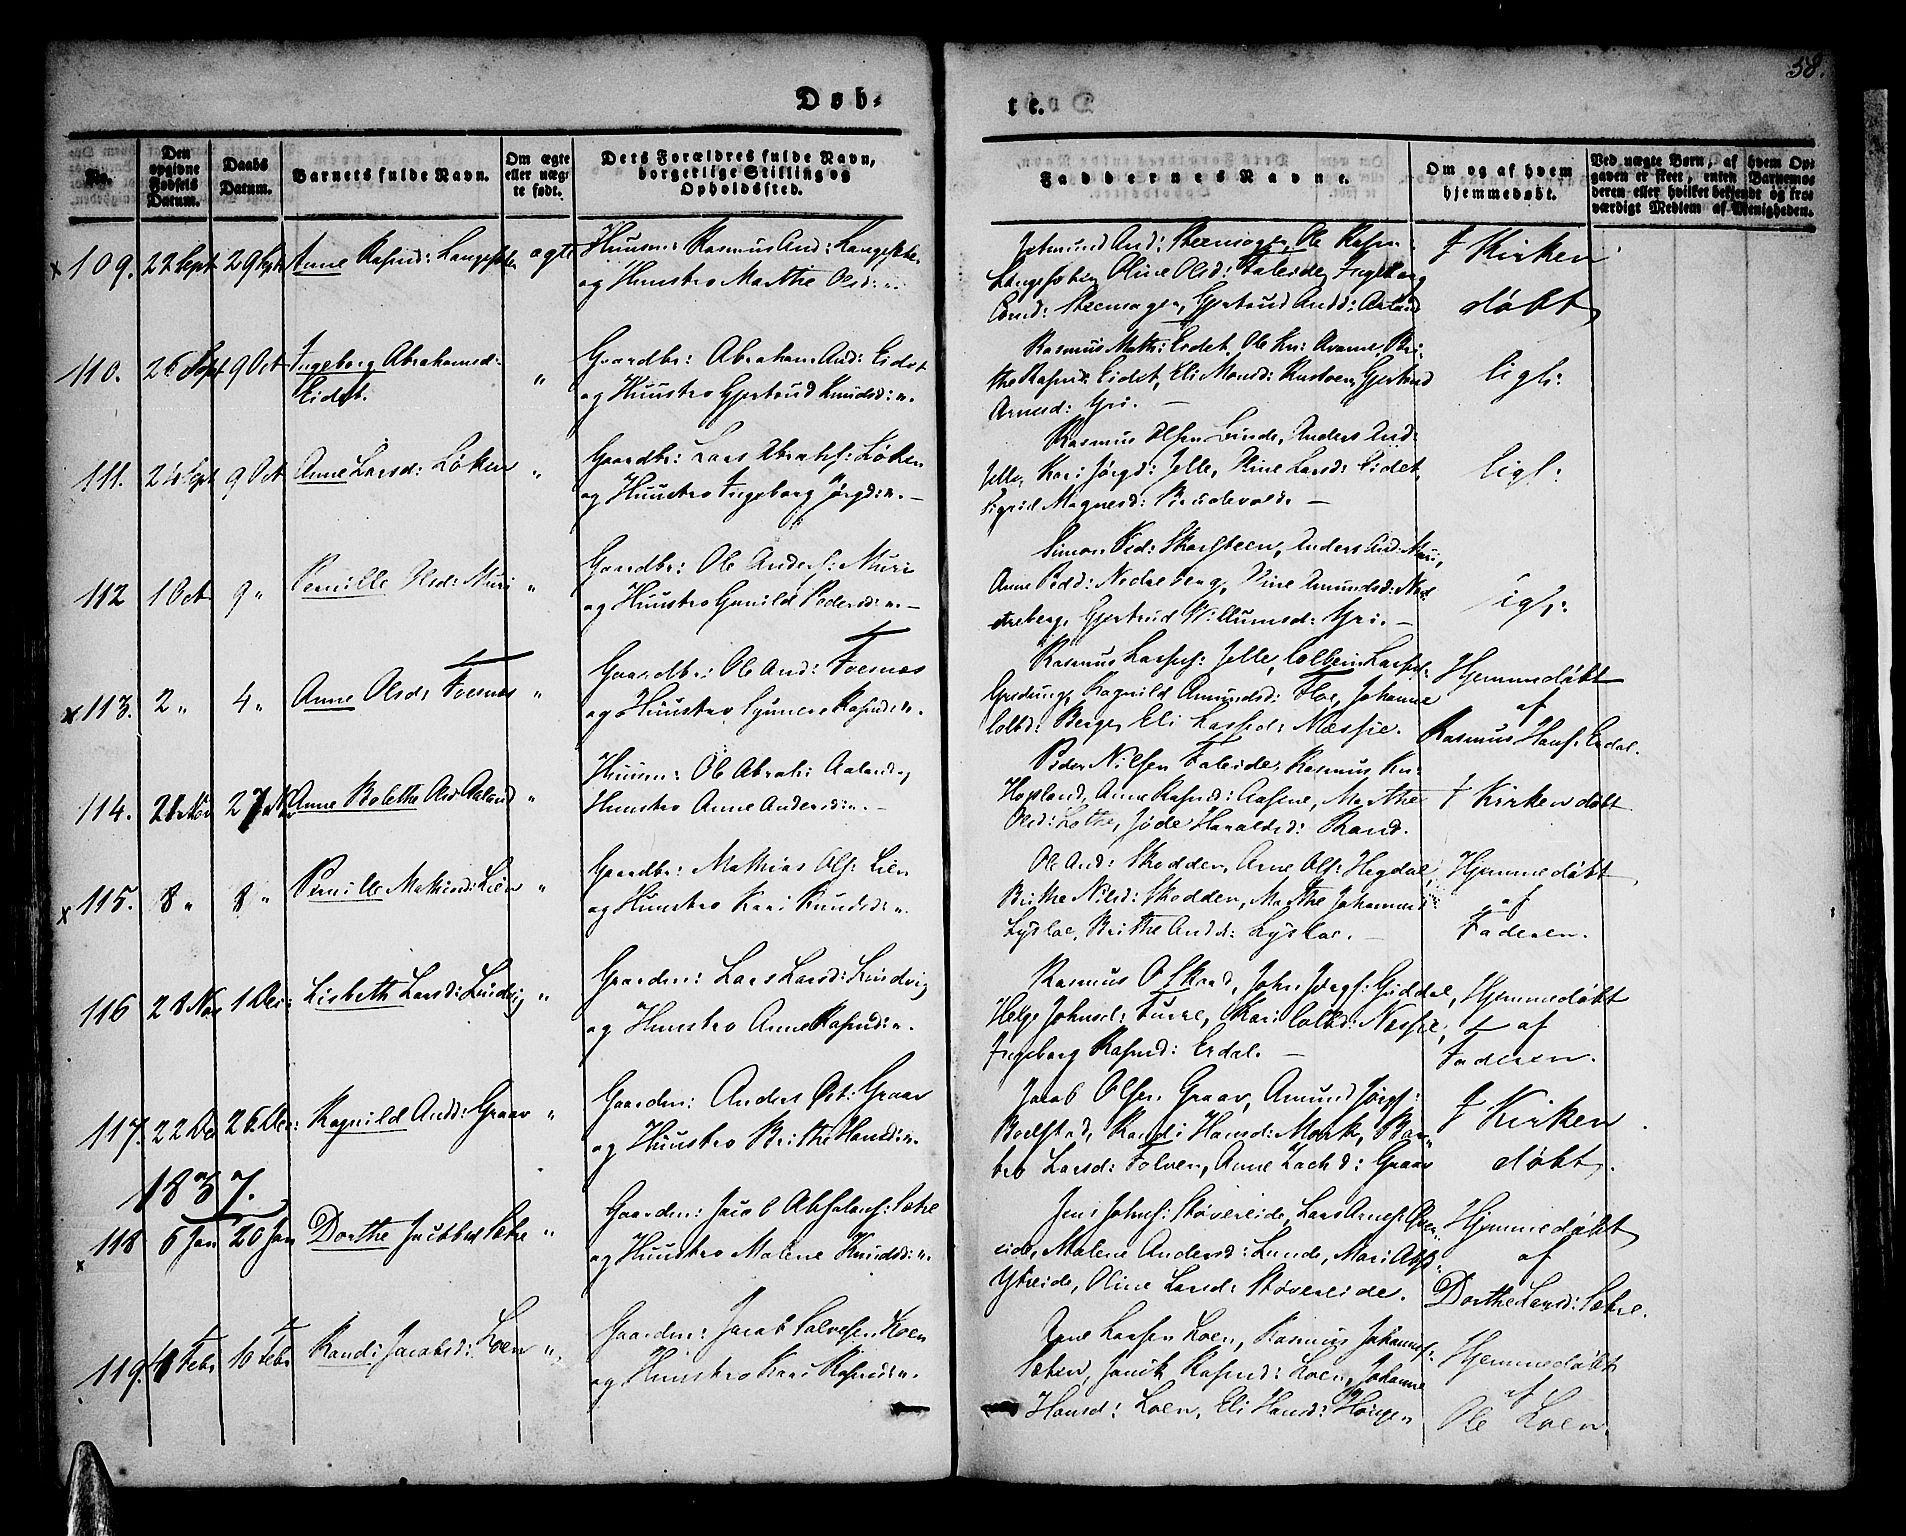 58.
Døb-
te.
No.
Den opgivne Fødsels Datum.
Daabs Datum.
Barnets fulde Navn.
Om ægte eller uægte født.
Dets Forældres fulde Navn, borgerlige Stilling og Opholdssted.
Faddernes Navne.
Om og af hvem hjemmedøbt.
Ved uægte Børn, af hvem Opgaven er skeet, enten Barnemoderen eller hvilket bekjendt og troværdigt Medlem af Menigheden.
109. 22 Sept 29 Sept Anne Rasmd: ægte Huusm: Rasmus And:
og Huustro Marthe Olsd: "
And: Ole Rasm:
Oline Olsd: Faleide, Ingeborg
Gjertrud Andd: Aaland
I Kirken
døbt
110. 26 Sept 9 Oct Ingeborg Abrahamsd: Eidet. " Gaardbr: Abraham And: Eidet
og Huustro Gjertrud Knudsd: ".
Rasmus Math: Eidet, Ole Kn: Avane, Bri-
the Rasmd: Eidet, Eli Monsd: Gjertrud
Arnesd: Gri. —
ligl:
111. 24 Sept 9 Oct Anne Larsd: Løken " Gaardbr: Lars Abrahf: Løken
og Huustro Ingeborg Jørgd: ". —
Rasmus Olsen Lunde, Anders And:
Jelle, Kari Jørgd: Jelle, Stine Larsd: Eidet,
Sigrid Magnesd: Bruudevold. —
ligl:
112 1 Oct 9 " Pernille Olsd: Muri " Gaardbr: Ole Andersf: Muri
og Huustro Gunild Pedersd: ". —
Simon Ped: Skarsteen, Anders And: Muri,
Anne Pedd: Nedreberg, Stine Amundsd: Ned-
dreberg, Gjertrud Willumsd: Gri. —
ligl:
113. 2 " 4 " Anne Olsd: Tvesnæs " Gaardbr: Ole And: Tvesnæs
og Huustro Synneve Rasmd: ".
Rasmus Lassesf: Jelle, Colbein Lassesf:
Ragnild Amundsd: Floe, Johanne
Colbd: Berge, Eli Lassed: Næssie.
Hjemmedøbt
af
Rasmus Hansf: Erdal.
114. 21 Nov 27 N Anne Bolethe Olsd: Aaland " Huusm: Ole Abrah: Aaland og
Huustro Anne Andersd: ". —
Peder Nilsen Faleide, Rasmus Kn:
Hopland, Anne Rasmd: Marthe
Olsd: Lothe, Jøde Haraldsd: Rand.
I Kirken døbt
115. 8 " 8 " Pernille Mathiasd: Lien " Gaardbr: Mathias Olsf: Lien
og Huustro Kari Knudsd: ".
Ole And: Skodden, Arne Olsf: Hegdal,
Brithe Nilsd: Skodden, Marthe Johannesd:
Lysloe, Brithe Andd: Lysloe. —
Hjemmedøbt
af
Faderen.
116 28 Nov 1 Dec: Lisbeth Larsd: Lindvig " Gaardm: Lars Larsd: Lindvig
og Huustro Anne Rasmd: ".
Rasmus John Jørgf: Guddal,
Helge Johnsd: Furre, Kari Colbd: Næssie,
Ingeborg Rasmd: Erdal. —
Hjemmedøbt
af
Faderen.
117. 22 Do 26 Dec: Ragnild Andd: Graav " Gaardm: Anders Graav
og Huustro Brithe Hansd: ".
Jacob Olsen Graav, Amund Jørgf:
Boelstad, Randi Hansd: Mork, Bar-
bro Larsd: Folven, Anne Zachd: Graav
I Kirken
døbt.
1837.
118 6 Jan 20 Jan Dorthe Jacobsd Sætre " Gaardm: Jacob Absalonf: Sætre
og Huustro Malene Knudsd: ".
Jens Johnf: Støvereide, Lars Arnef:
Malene Andersd: Lunde, Mari Abs
Ytreide, Oline Larsd: Støvereide.
Hjemmedøbt
af
Dorthe Larsd: Sætre.
119. Febr 10 Febr Randi Jacobsd: Loen " Gaardm: Jacob Salvesen Loen
og Huustro Kari Rasmd: ".
Lassen Loen, Rasmus Johannesf:
Sæten, Rasmd: Loen, Johanne
Hansd: Loen, Eli Hansd:
Hjemmedøbt
af
Ole Loen.